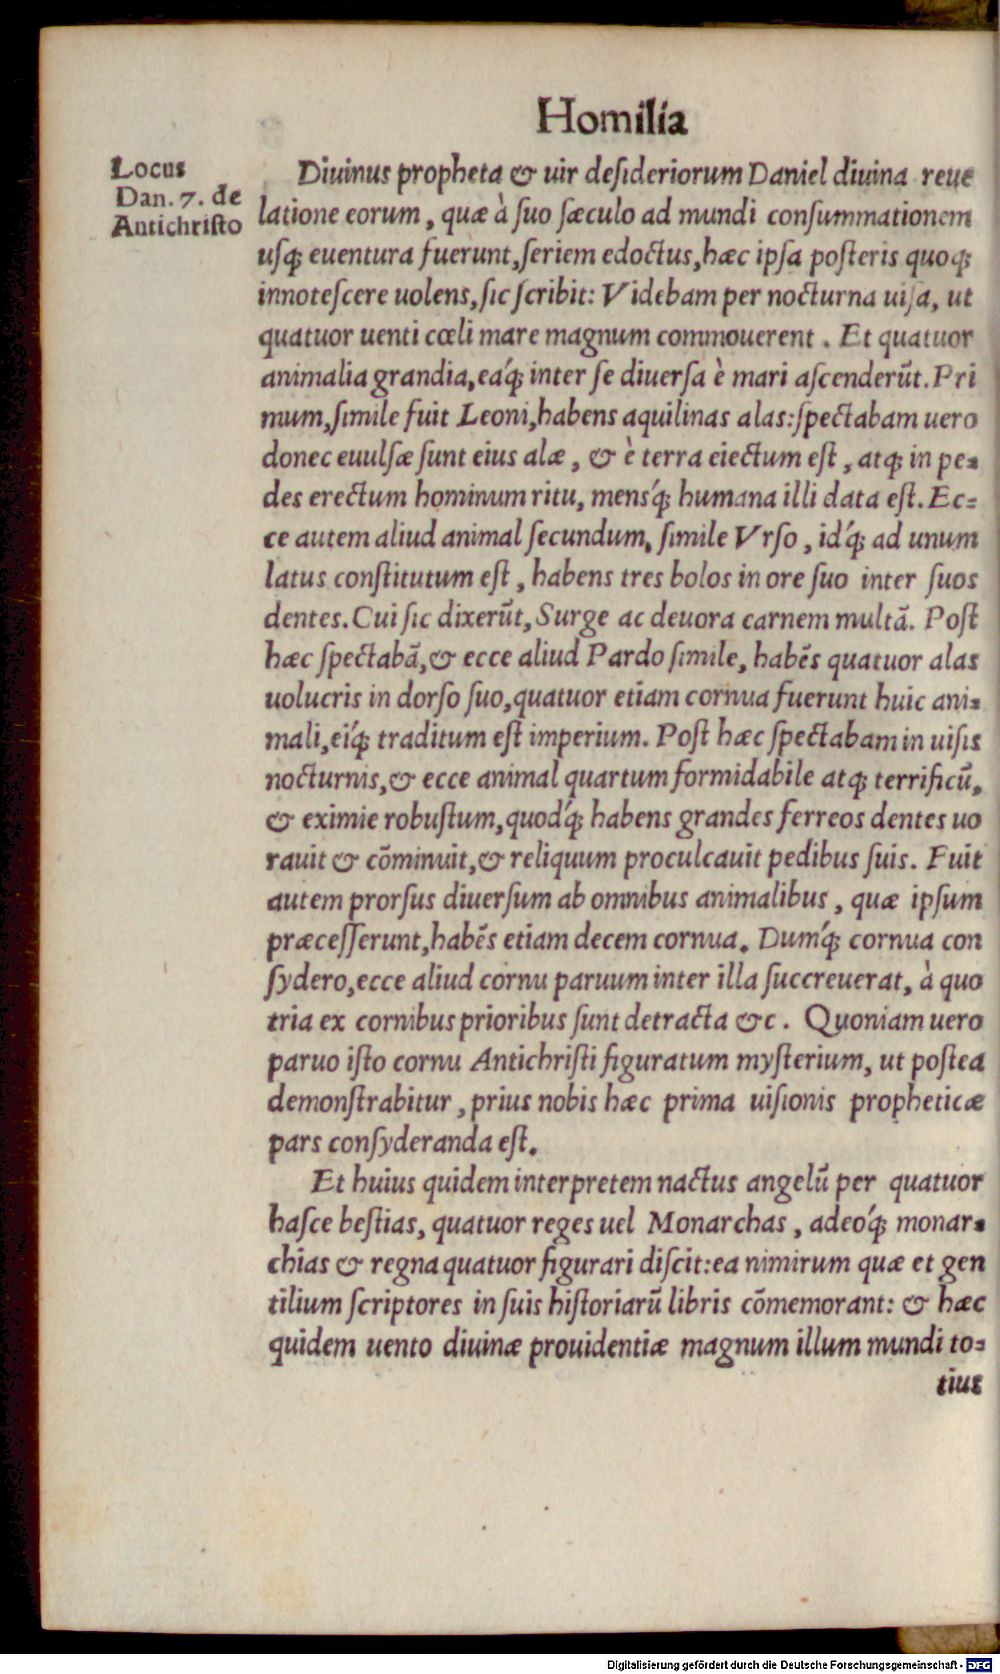 Homilia
Locus
Dan. 7. de
Antichristo
Diuinus propheta & uir desideriorum Daniel diuina reue
latione eorum, quæ à suo sæculo ad mundi consummationem
usq; euentura fuerunt, seriem edoctus, hæc ipsa posteris quoq;
innotescere uolens, sic scribit: Videbam per nocturna uisa, ut
quatuor uenti cœli mare magnum commouerent. Et quatuor
animalia grandia, eáq; inter se diuersa è mari ascenderūt. Pri
mum, simile fuit Leoni, habens aquilinas alas: spectabam uero
donec euulsæ sunt eius alæ, & è terra eiectum est, atq; in pe=
des erectum hominum ritu, mensq́; humana illi data est. Ec=
ce autem aliud animal secundum, simile Vrso, idq́; ad unum
latus constitutum est, habens tres bolos in ore suo inter suos
dentes. Cui sic dixerūt, Surge ac deuora carnem multā. Post
hæc spectabā, & ecce aliud Pardo simile, habēs quatuor alas
uolucris in dorso suo, quatuor etiam cornua fuerunt huic ani=
mali, eíq; traditum est imperium. Post hæc spectabam in uisis
nocturnis, & ecce animal quartum formidabile atq; terrificū,
& eximie robustum, quodq́; habens grandes ferreos dentes uo
rauit & cōminuit, & reliquum proculcauit pedibus suis. Fuit
autem prorsus diuersum ab omnibus animalibus, quæ ipsum
præcesserunt, habēs etiam decem cornua. Dumq́; cornua con
sydero, ecce aliud cornu paruum inter illa succreuerat, à quo
tria ex cornibus prioribus sunt detracta &c. Quoniam uero
paruo isto cornu Antichristi figuratum mysterium, ut postea
demonstrabitur, prius nobis hæc prima uisionis propheticæ
pars consyderanda est.
Et huius quidem interpretem nactus angelū per quatuor
hasce bestias, quatuor reges uel Monarchas, adeóq; monar=
chias & regna quatuor figurari discit: ea nimirum quæ et gen
tilium scriptores in suis historiarū libris cōmemorant: & hæc
quidem uento diuinæ prouidentiæ magnum illum mundi to=
tius
Digitalisierung gefördert durch die Deutsche Forschungsgemeinschaft - DFG